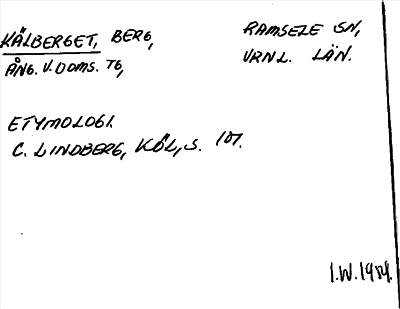 KÄLBERGET, BERG, RAMSELE SN,
ÅNG. V. DOMS. TG, VRNL. LÄN.
ETYMOLOGI.
C. LINDBERG, KÖL, S. 107.
I.W. 1984.